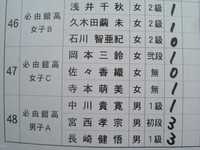 浅井千秋 女 2級 1
46 必由館高 女子B 久木田繭未 女 2級 1
石川智亜紀 女 2級 0
岡本三鈴 女 弐段 1
47 必由館高 女子C 佐々香織 女 1級 0
寺本萌美 女 1級 1
中川貴寛 男 1級 1
48 必由館高 男子A 宮西孝宗 男 初段 3
長崎健悟 男 1級 3